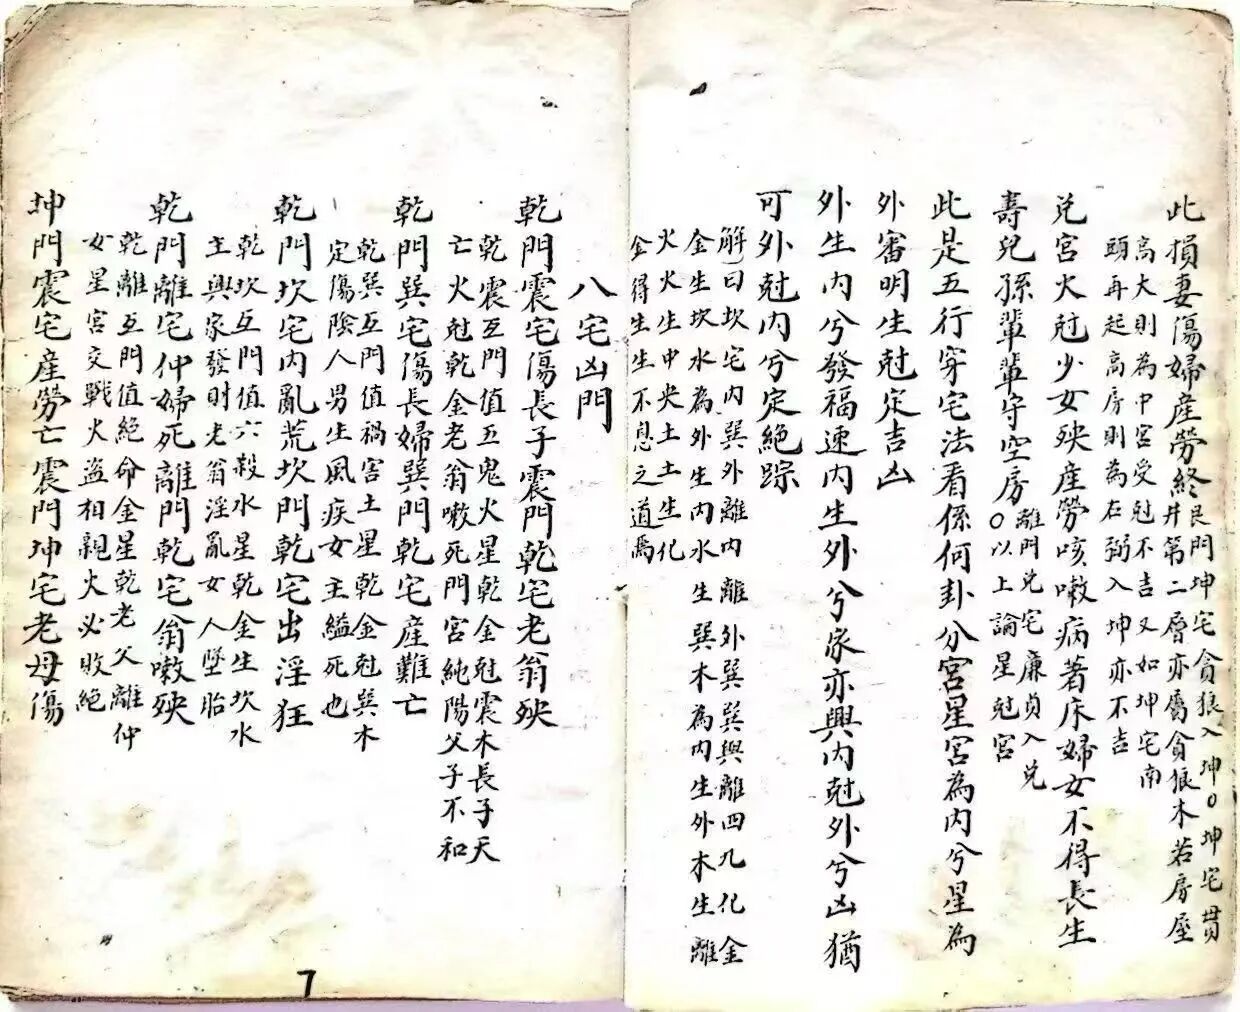 此損妻傷婦產勞終
艮門坤宅貪狼入坤○坤宅貫
井第二層亦屬貪狼木若房屋
高大則為中宮受尅不吉又如坤宅南
頭再起高房則為右弼入坤亦不吉
兌宮火尅少女殃產勞咳嗽病著床婦女不得長生
壽兒孫輩輩守空房
離門兌宅廉貞入兌
○以上論星尅宮
此是五行穿宅法看係何卦分宮星宮為內兮星為
外審明生尅定吉凶
外生內兮發福速內生外兮家亦興內尅外兮凶猶
可外尅內兮定絕踪
解曰坎宅內巽外離內離外巽巽與離四九化金
金生坎水為外生內水生巽木為內生外木生離
火火生中央土土生化
金得生生不息之道焉
八宅凶門
乾門震宅傷長子震門乾宅老翁殃
乾震互門值五鬼火星乾金尅震木長子夭
亡火尅乾金老翁嗽死門宮純陽父子不和
乾門巽宅傷長婦巽門乾宅產難亡
乾巽互門值禍害土星乾金尅巽木
定傷陰人男生風疾女主縊死也
乾門坎宅內亂荒坎門乾宅出淫狂
乾坎互門值六殺水星乾金生坎水
主興家發財老翁淫亂女人墜胎
乾門離宅仲婦死離門乾宅翁嗽殃
乾離互門值絕命金星乾老父離仲
女星宮交戰火盜相親火必敗絕
坤門震宅產勞亡震門坤宅老母傷
7